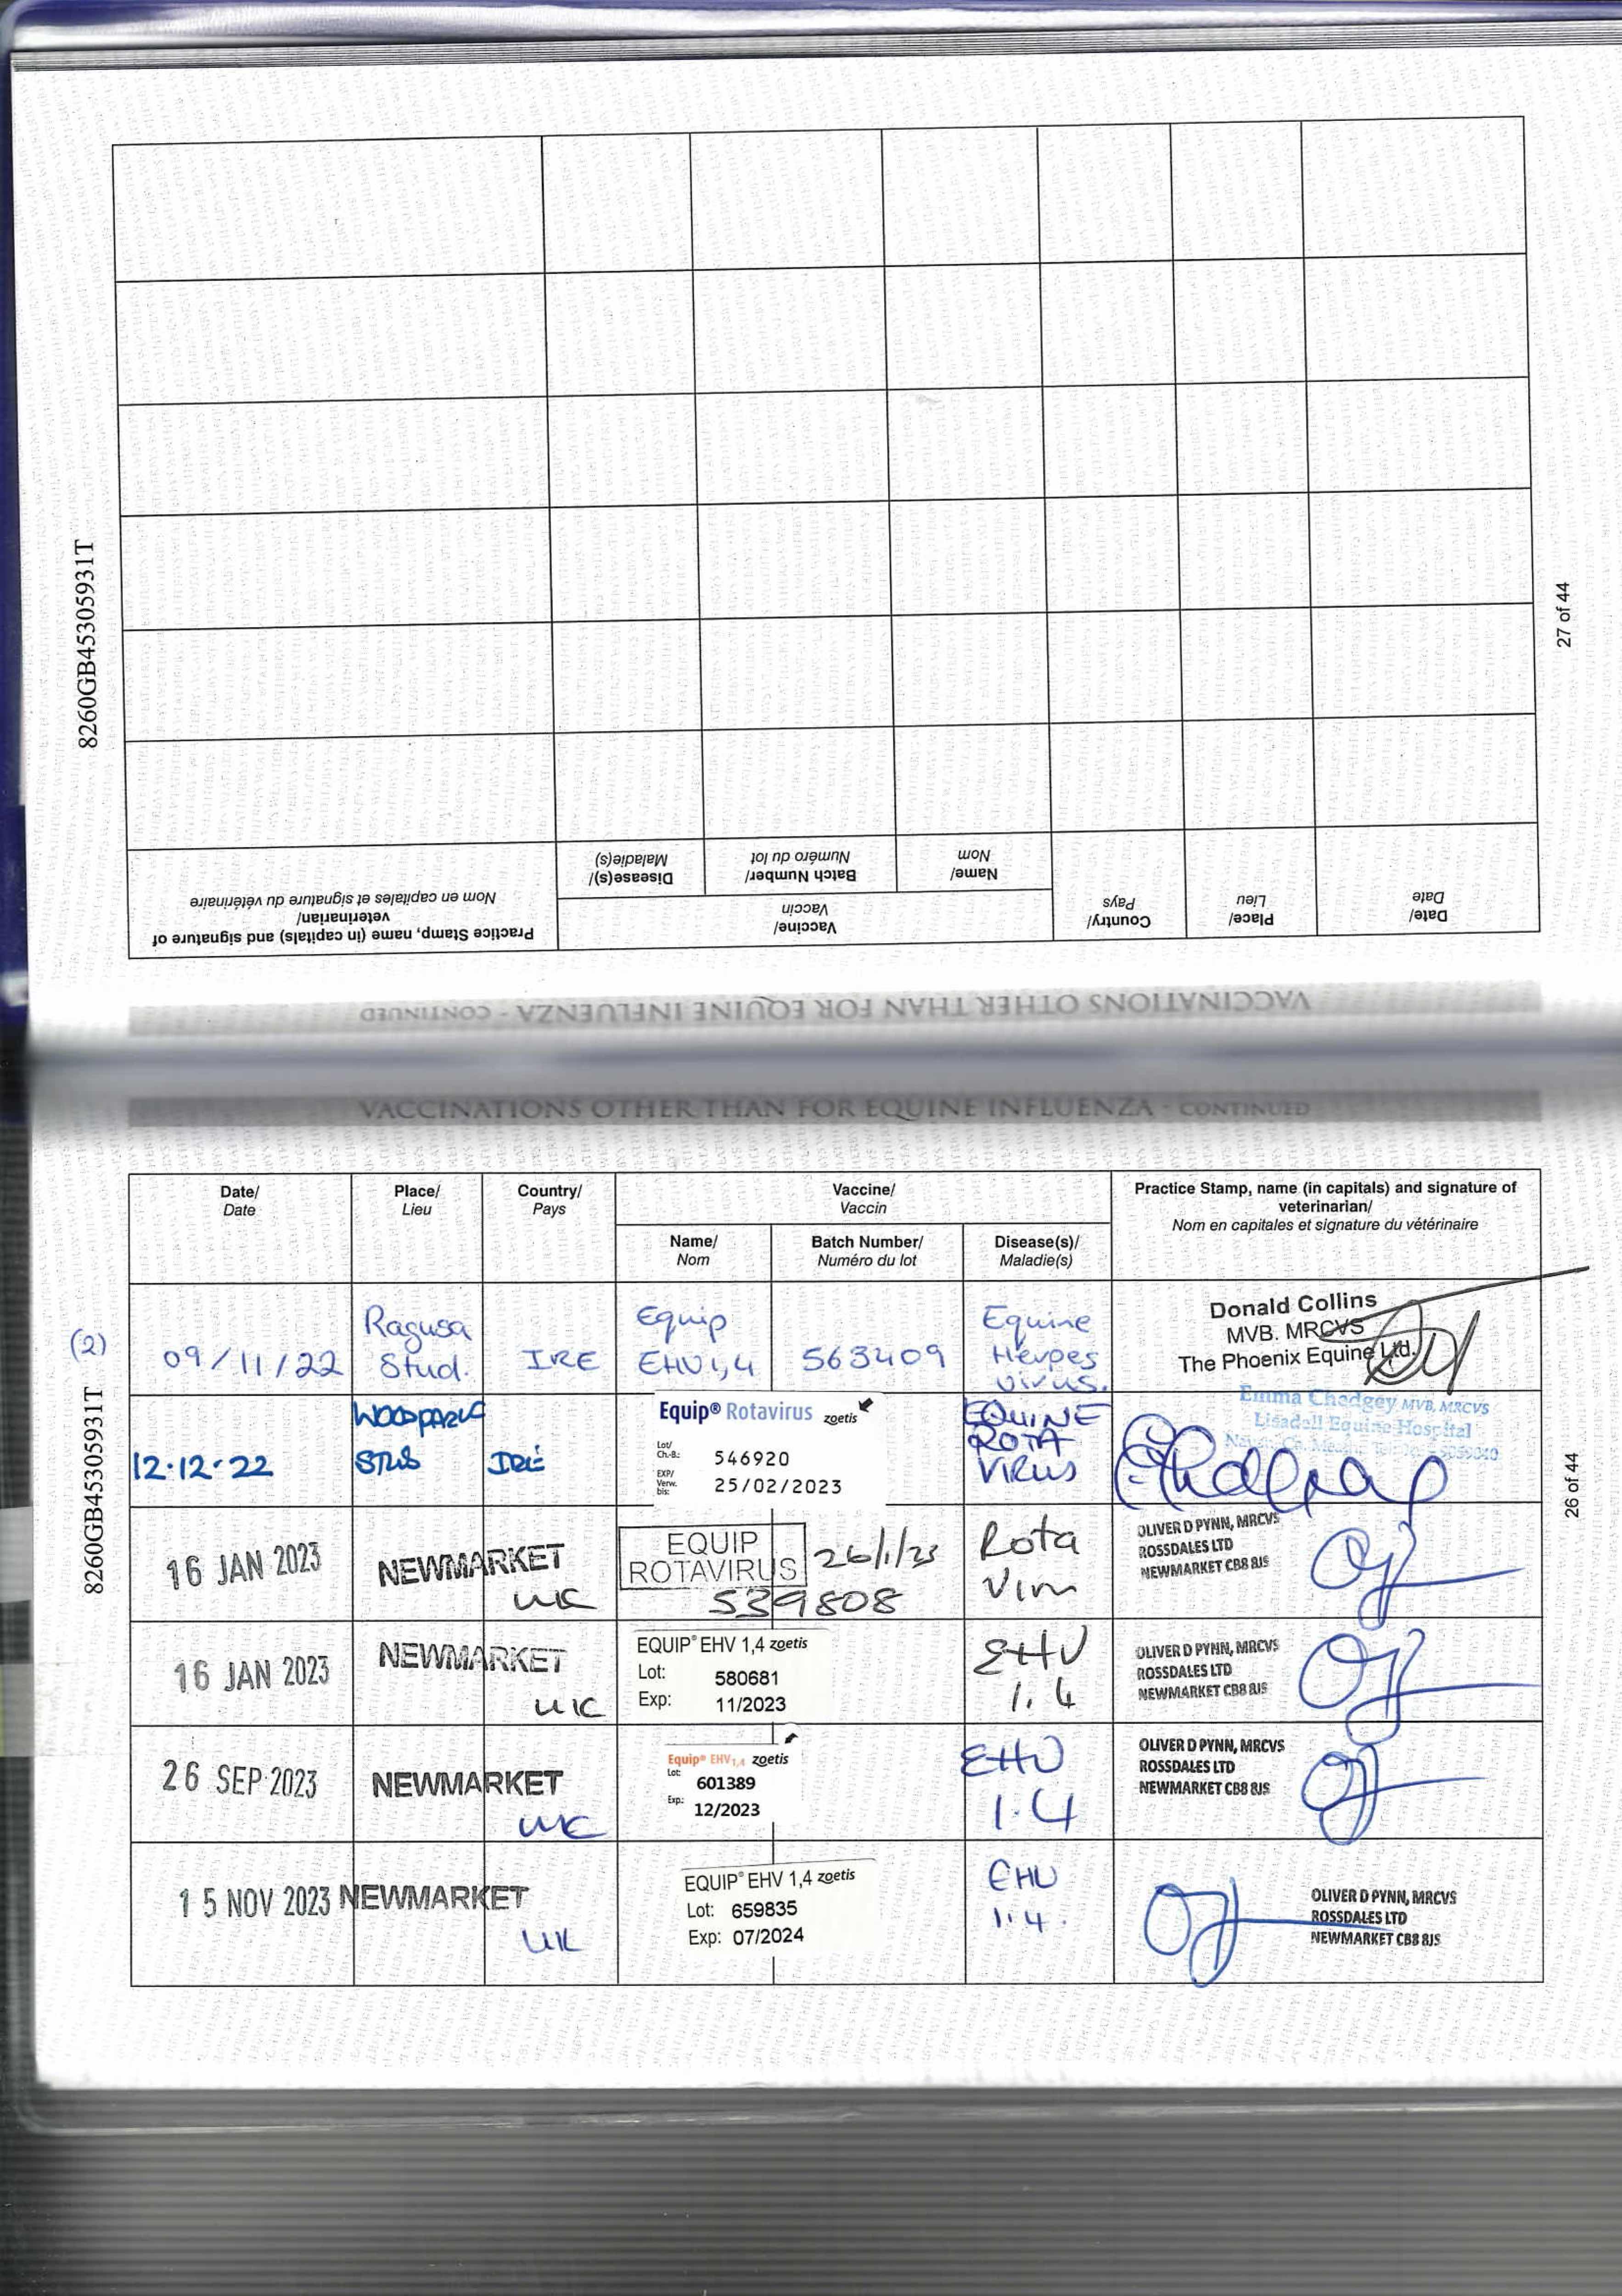 8260GB45305931T
27 of 44
Practice Stamp, name (in capitals) and signature of
veterinarian/
Nom en capitales et signature du vétérinaire
Vaccine/
Vaccin
Disease(s)/
Maladie(s)
Batch Number/
Numéro du lot
Name/
Nom
Country/
Pays
Place/
Lieu
Date/
Date
VACCINATIONS OTHER THAN FOR EQUINE INFLUENZA - CONTINUED
VACCINATIONS OTHER THAN FOR EQUINE INFLUENZA - CONTINUED
Date/
Date
Place/
Lieu
Country/
Pays
Vaccine/
Vaccin
Name/
Nom
Batch Number/
Numéro du lot
Disease(s)/
Maladie(s)
Practice Stamp, name (in capitals) and signature of
veterinarian/
Nom en capitales et signature du vétérinaire
(2)
8260GB45305931T
26 of 44
09/11/22
Ragusa
Stud.
IRE
Equip
EHV1,4
563409
Equine
Herpes
Virus.
Donald Collins
MVB. MRCVS
The Phoenix Equine Ltd.
12.12.22
WOODPARK
STUD
IRE
Equip® Rotavirus zoetis
Lot/
Ch.-B.:
546920
EXP/
Verw.
bis:
25/02/2023
EQUINE
ROTA
VIRUS
Emma Chedgey MVB, MRCVS
Lisadell Equine Hospital
16 JAN 2023
NEWMARKET
UK
EQUIP
ROTAVIRUS
26/1/23
539808
Rota
OLIVER D PYNN, MRCVS
ROSSDALES LTD
NEWMARKET CB8 8JS
16 JAN 2023
NEWMARKET
UK
EQUIP® EHV 1,4 zoetis
Lot: 580681
Exp: 11/2023
EHV
1.4
OLIVER D PYNN, MRCVS
ROSSDALES LTD
NEWMARKET CB8 8JS
26 SEP 2023
NEWMARKET
UK
Equip® EHV1,4 zoetis
Lot: 601389
Exp.: 12/2023
EHV
1.4
OLIVER D PYNN, MRCVS
ROSSDALES LTD
NEWMARKET CB8 8JS
15 NOV 2023
NEWMARKET
UK
EQUIP® EHV 1,4 zoetis
Lot: 659835
Exp: 07/2024
EHV
1.4.
OLIVER D PYNN, MRCVS
ROSSDALES LTD
NEWMARKET CB8 8JS